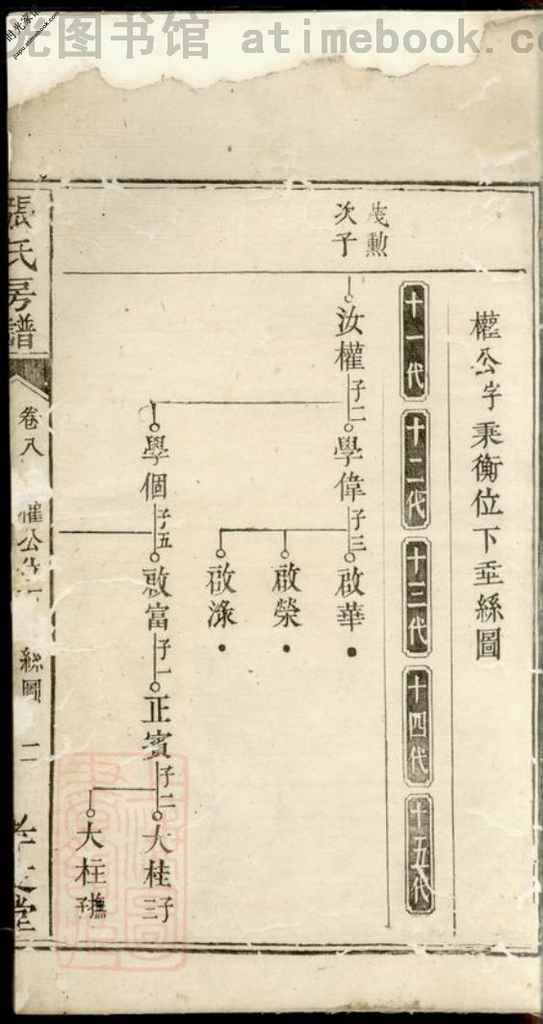 光图书馆 atimebook.c
權公字乘衡位下垂絲圖
十一代
十二代
十三代
十四代
十五代
茂勲
次子
汝權
子二
學偉
子三
啟華
啟榮
啟淥
學個
子五
啟富
子一
正賓
子二
大桂
子三
大柱
撫子
張氏房譜
卷八
權公
絲圖
二
孝友堂